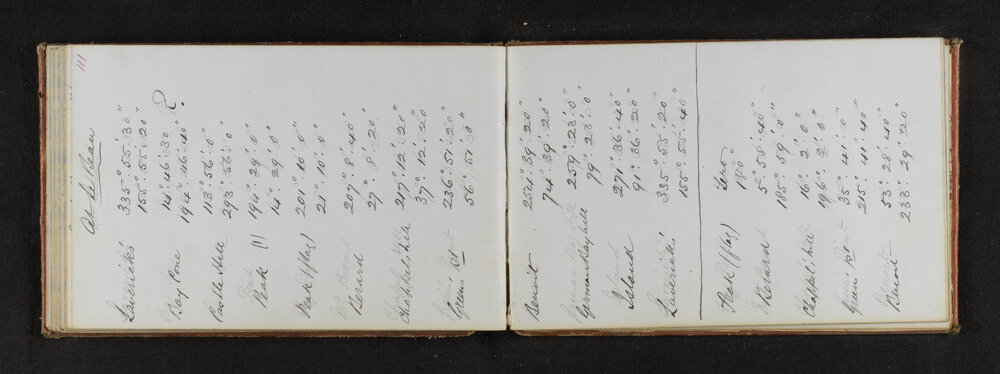 111
At Le Beau
Laverick's 335°: 55': 30"
155°: 55': 20"
Bay Cone 14°: 46': 30 R.
194°: 46': 40"
Castle Hill 113°: 56': 0"
293°: 56': 0"
Peak (1) 194°: 29': 0"
14°: 29': 0
Peak (flag) 201°: 10': 0"
21°: 10': 0
Berard 207°: 8': 40"
27°: 8': 20
Chappel's hill 217°: 12': 20"
37°: 12': 20
Green Pt 236°: 51': 20"
56°: 51': 30"
Benoit 254°: 39': 20"
74°: 39': 20"
German Bay hill 259°: 23': 0"
79°: 23': 0
Island 271°: 36': 40"
91°: 36': 20
Laverick's 335°: 55': 20
155°: 55': 40
Zero
Peak (flag) 180°
Berard 5°: 58': 40"
185°: 59': 0"
Chappel's hill 16°: 2': 0"
196°: 2': 0
Green Pt 35°: 41': 0"
215°: 41': 40
Benoit 53°: 28': 40"
233°: 29': 20